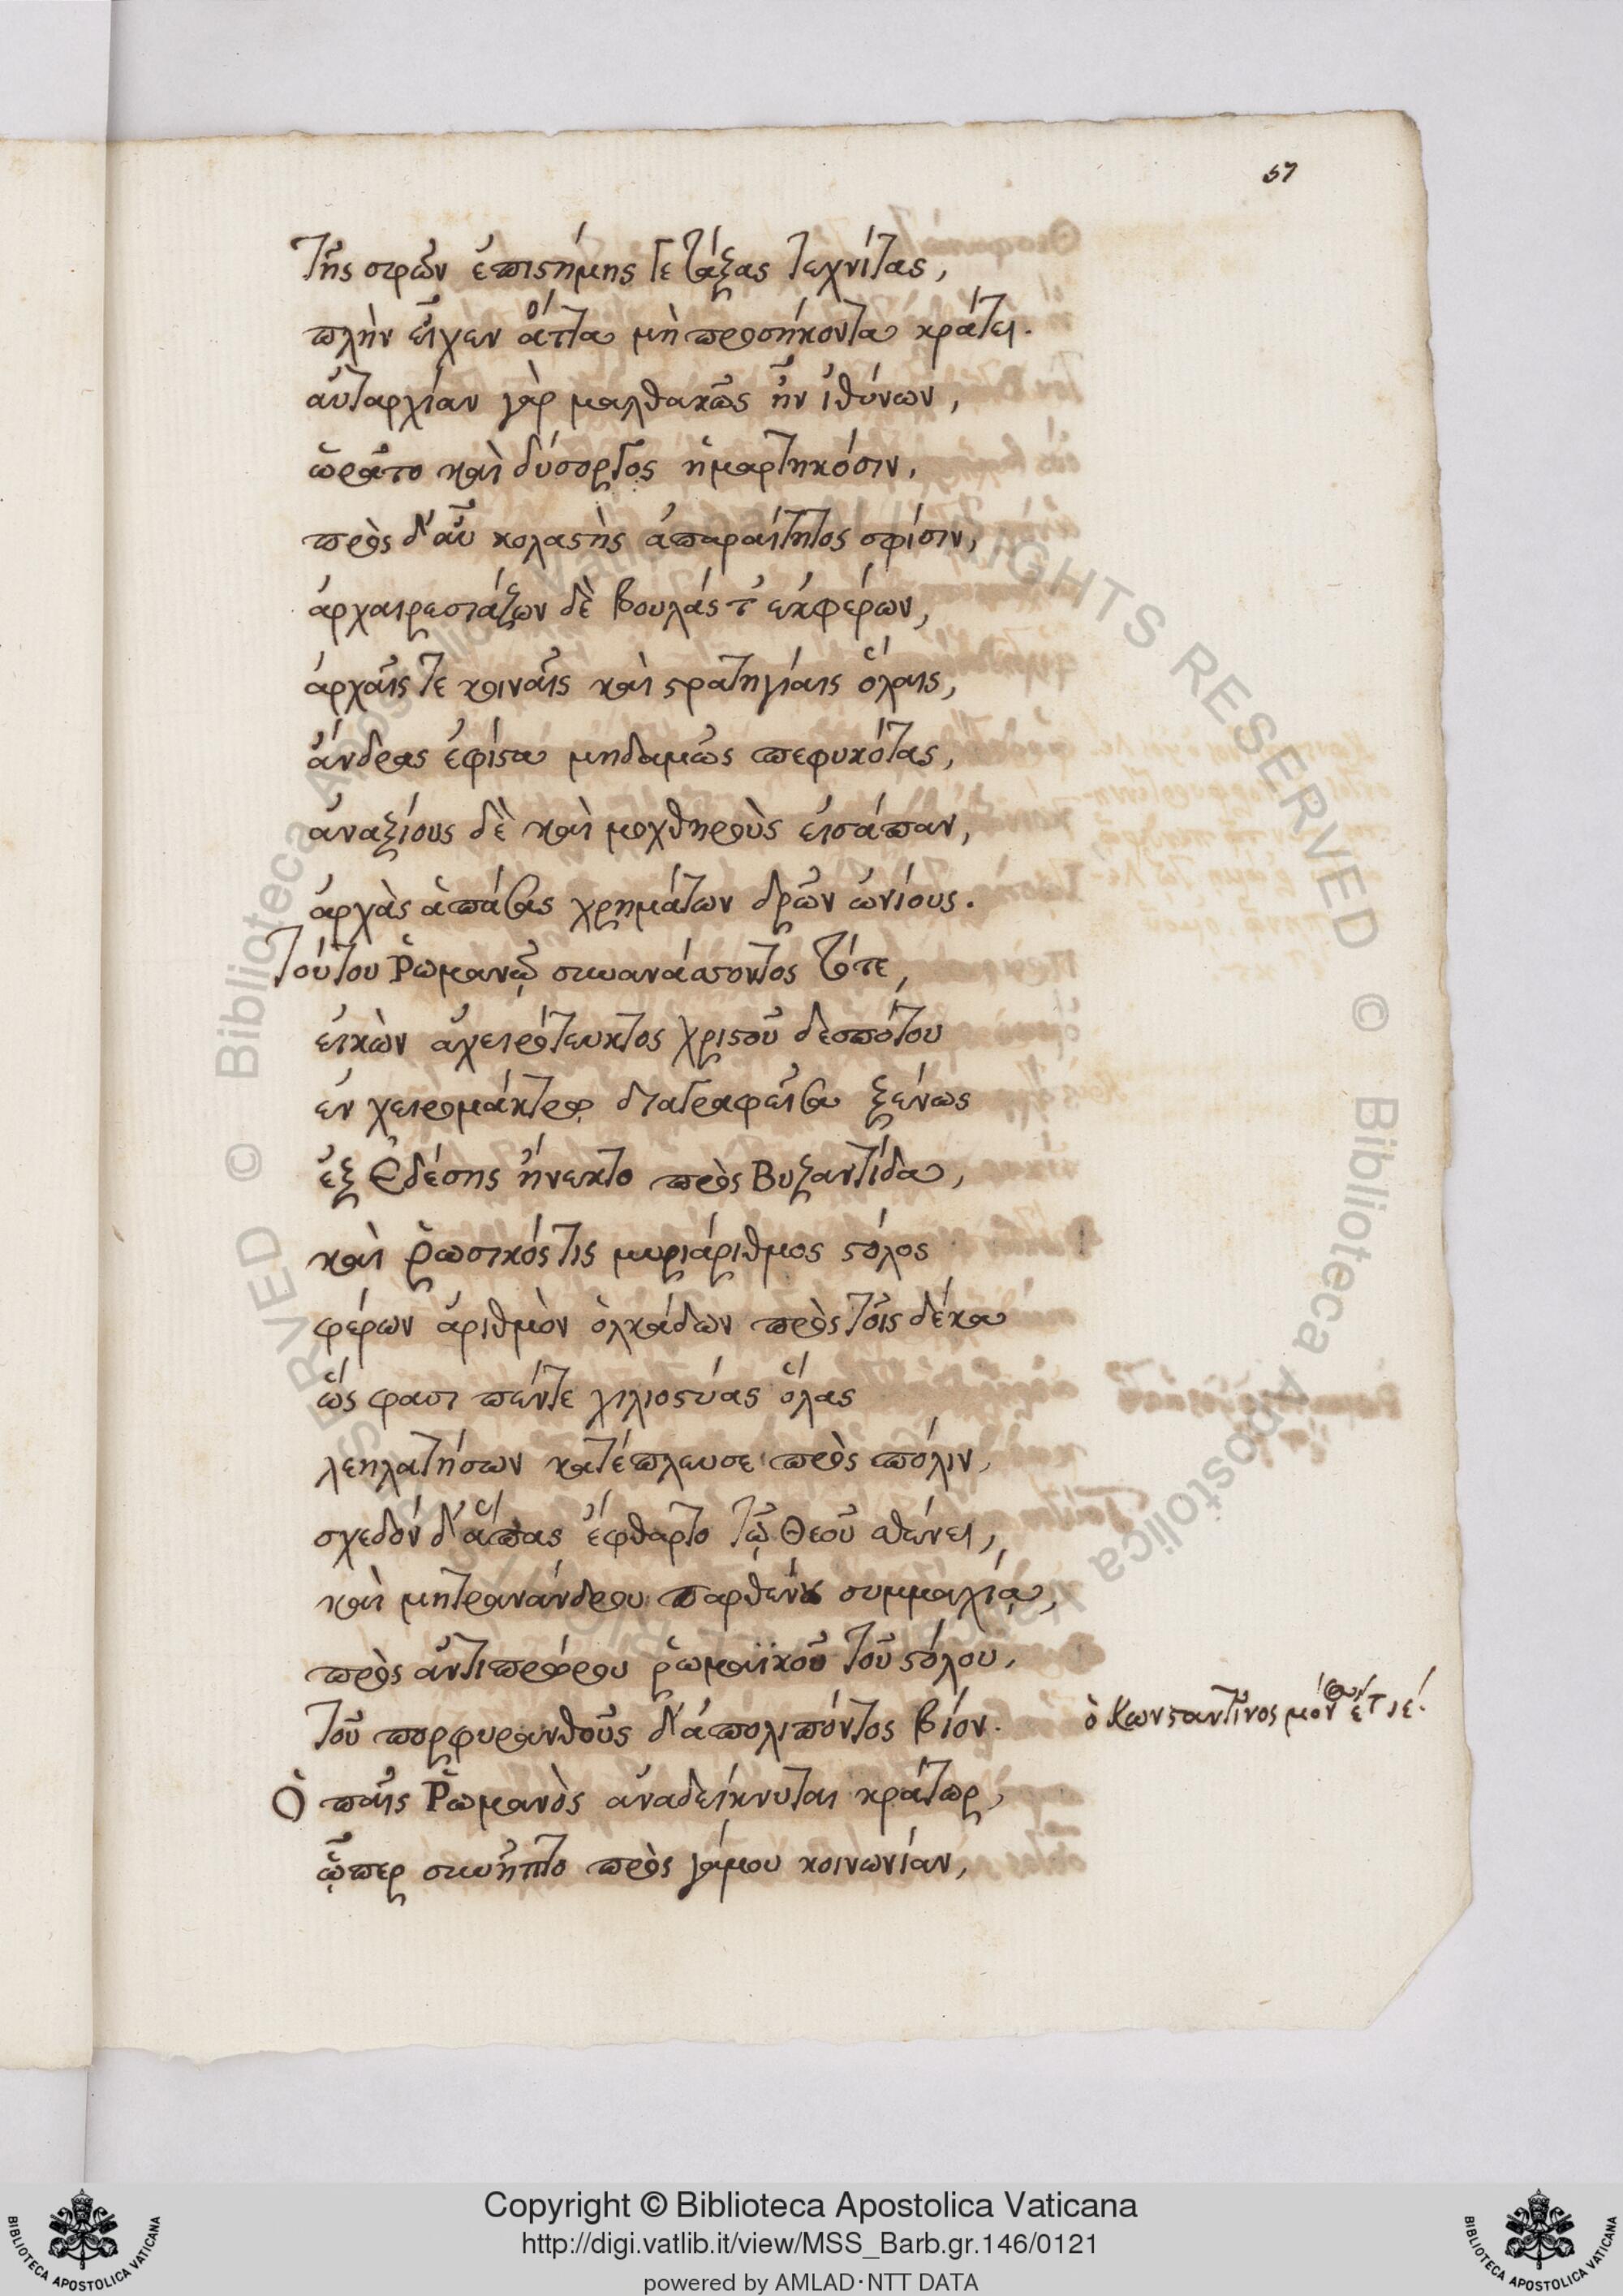 57
Τῆς σφῶν ἐπιστήμης γε τάξας τεχνίτας,
πλὴν εἶχεν ἄττα μὴ προσήκοντα κράτει.
αὐταρχίαν γὰρ μαλθακῶς ἦν ἰθύνων,
ὡρᾶτο καὶ δύσοργος ἡμαρτηκόσιν,
πρὸς δ' αὖ κολαστὴς ἀπαραίτητος σφίσιν,
ἀρχαιρεσιάζων δὲ βουλάς τ' ἐκφέρων,
ἀρχαῖς τε κοιναῖς καὶ στρατηγίαις ὅλαις,
ἄνδρας ἐφίστα μηδαμῶς πεφυκότας,
ἀναξίους δὲ καὶ μοχθηροὺς εἰσάπαν,
ἀρχὰς ἁπάσας χρημάτων δρῶν ὠνίους.
Τούτου Ῥωμανῷ συνανάσσοντος τότε,
εἰκὼν ἀχειρότευκτος χριστοῦ δεσπότου
ἐν χειρομάκτρῳ διαγραφεῖσα ξένως
ἐξ Ἐδέσης ἤνεκτο πρὸς Βυζαντίδα,
καὶ ῥωσικός τις μυριάριθμος στόλος
φέρων ἀριθμὸν ὁλκάδων πρὸς τοῖς δέκα
ὥς φασι πέντε χιλιοστύας ὅλας
λεηλατήσων κατέπλευσε πρὸς πόλιν,
σχεδόν δ' ἅπας ἔφθαρτο τῷ Θεοῦ σθένει,
καὶ μητρανάνδρου παρθένου συμμαχίᾳ,
πρὸς ἀντιπρώρου ῥωμαϊκοῦ τοῦ στόλου,
Τοῦ πορφυρανθοῦς δ' ἀπολιπόντος βίον.
ὁ Κωνσταντῖνος μόν ἔτ ιέ.
Ὁ παῖς Ῥωμανὸς ἀναδείκνυται κράτωρ,
ᾧπερ συνῆπτο πρὸς γάμου κοινωνίαν,
Copyright © Biblioteca Apostolica Vaticana
http://digi.vatlib.it/view/MSS_Barb.gr.146/0121
powered by AMLAD·NTT DATA
BIBLIOTECA APOSTOLICA VATICANA
BIBLIOTECA APOSTOLICA VATICANA